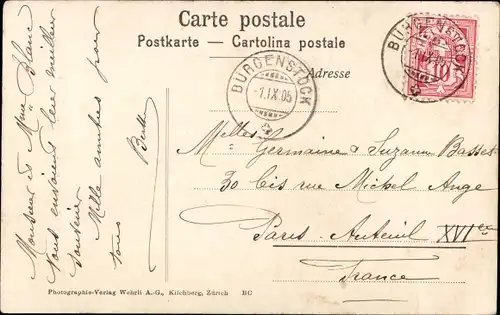 Carte postale
Postkarte — Cartolina postale
Adresse
BURGENSTOCK
-1.IX.05
BURGENSTOCK
-1.IX.05
10
Melles Germaine & Suzann Basset
30 bis rue Michel Ange
Paris Auteuil XVIe
France
Monsieur et Mme Blanc
vous envoient leur meilleur
souvenir
Mille amitiés pour
tous
Photographie-Verlag Wehrli A.-G., Kilchberg, Zürich BC